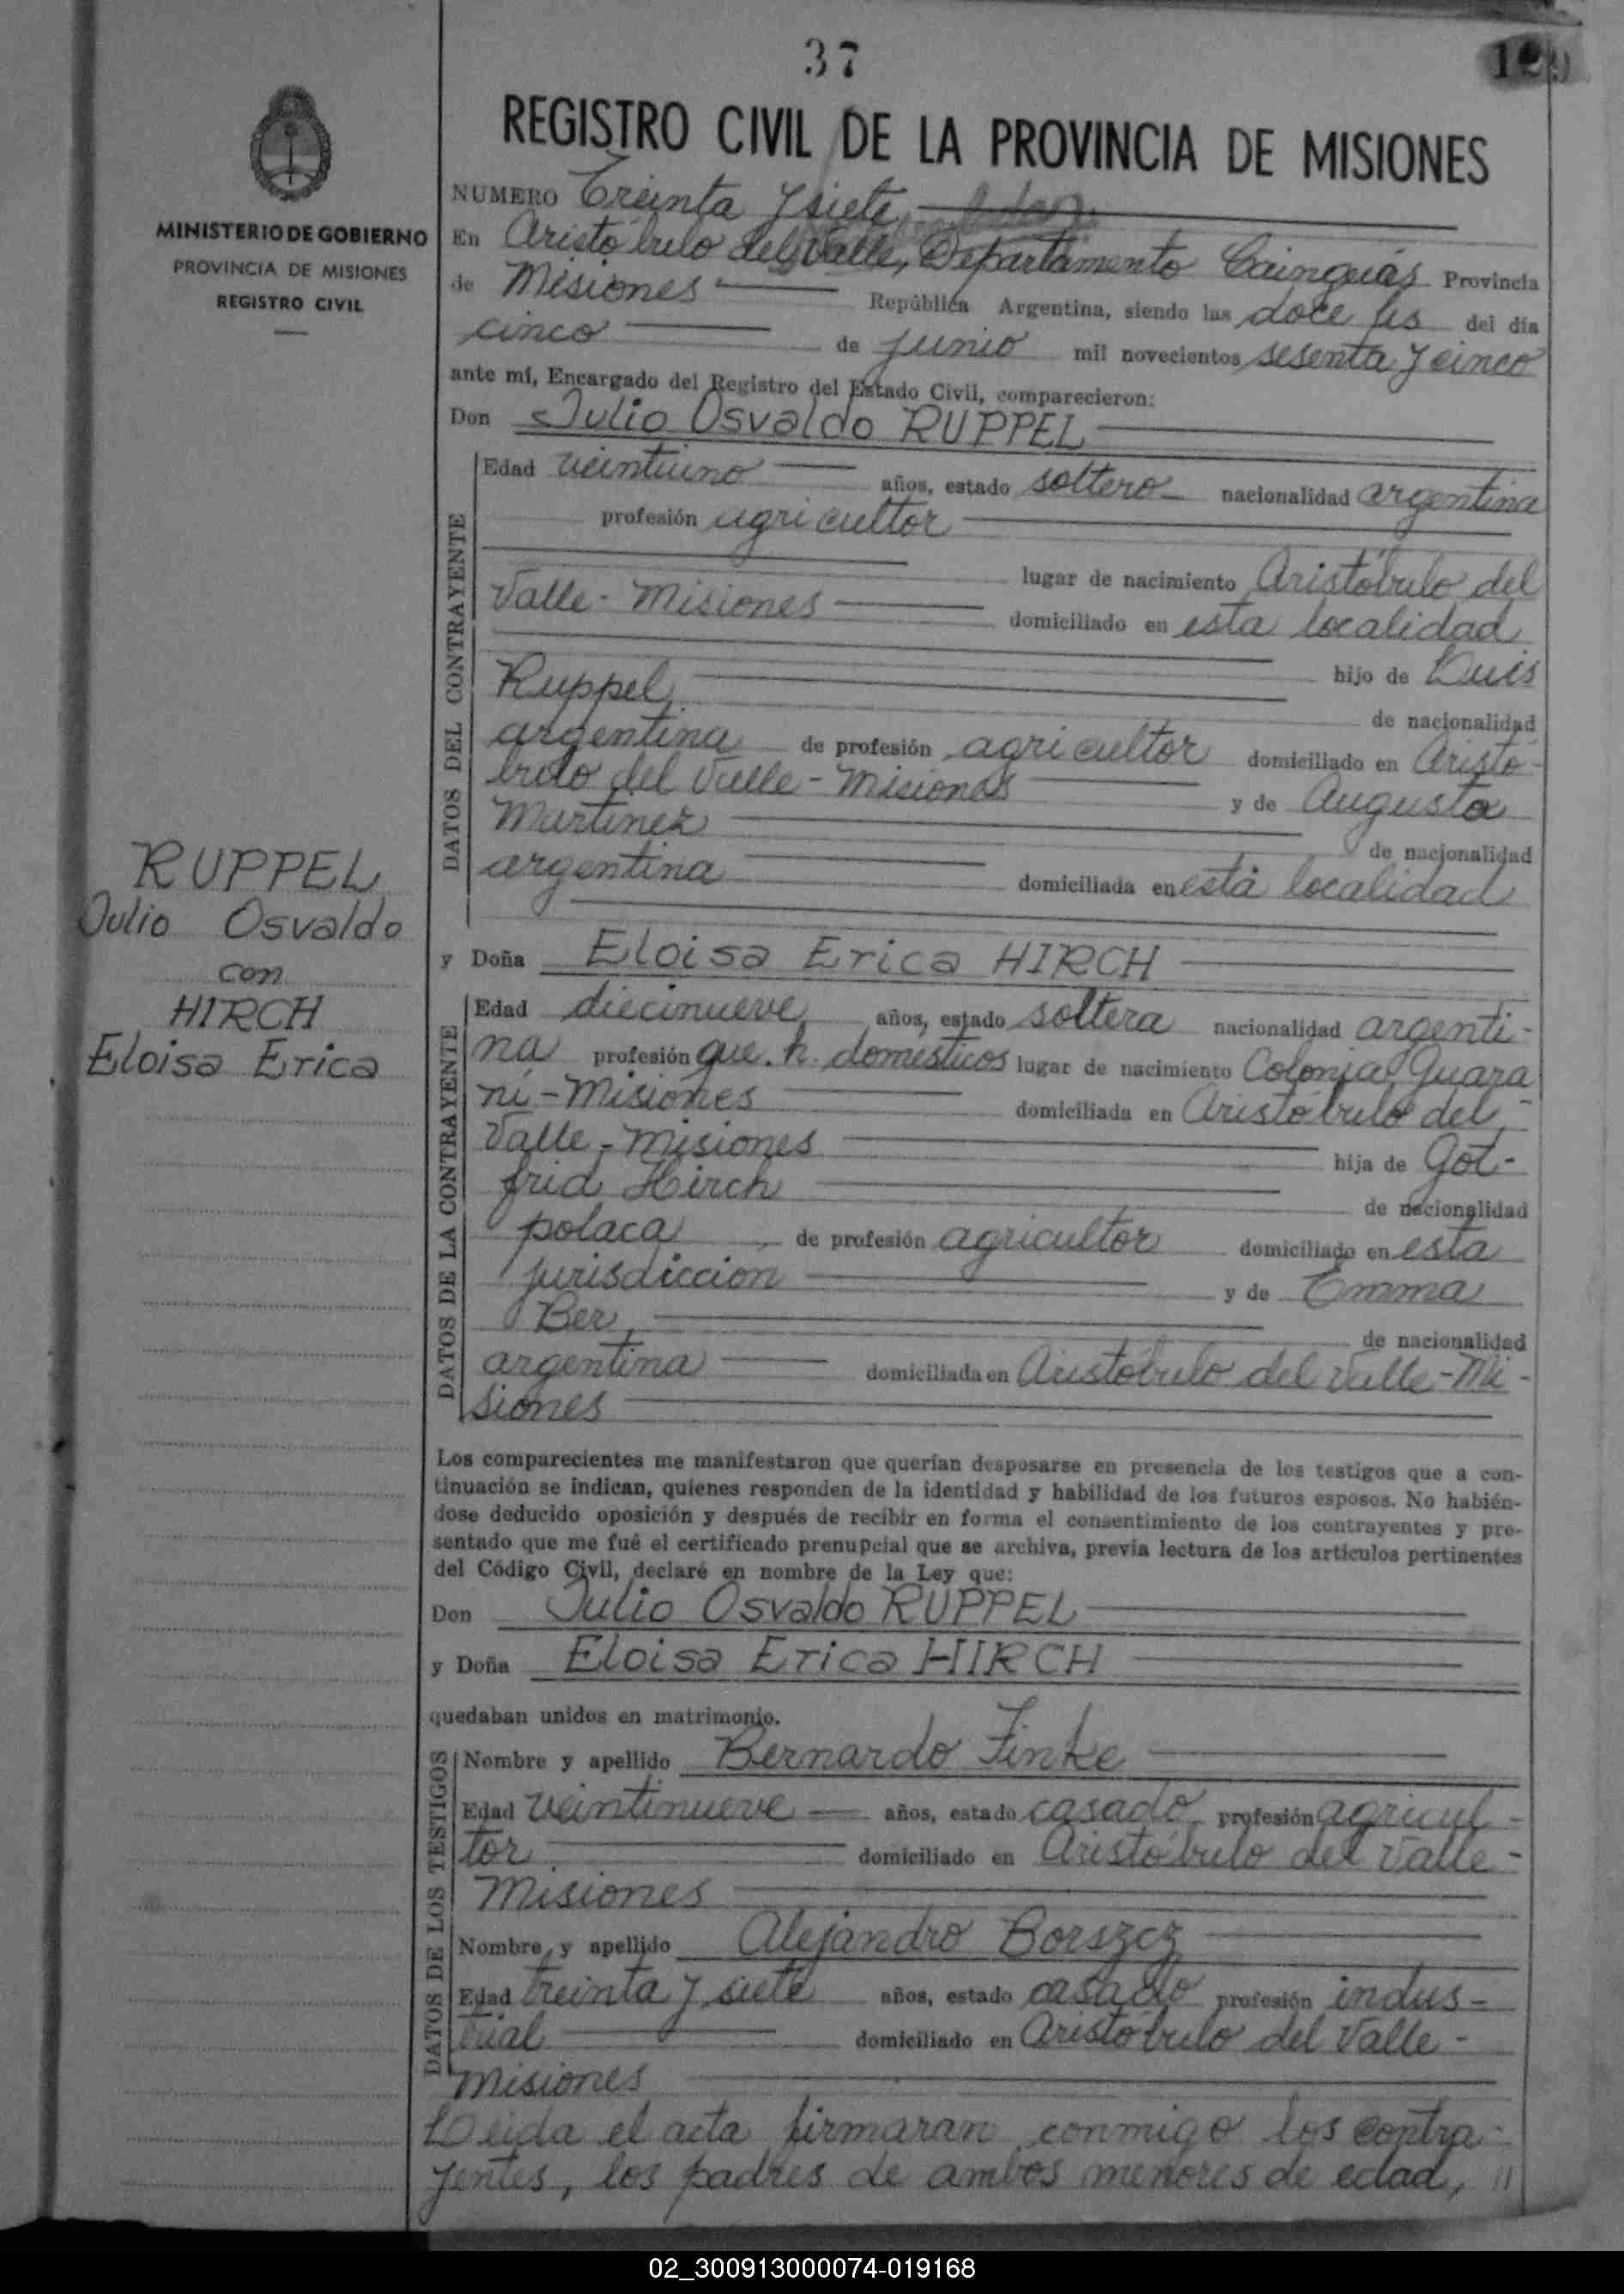 37
MINISTERIO DE GOBIERNO
PROVINCIA DE MISIONES
REGISTRO CIVIL
RUPPEL
Julio Osvaldo
con
HIRCH
Eloisa Erica
REGISTRO CIVIL DE LA PROVINCIA DE MISIONES
NUMERO Treinta y siete
En Aristóbulo del Valle, Departamento Cainguás Provincia
de Misiones República Argentina, siendo las doce hs del día
cinco de junio mil novecientos sesenta y cinco
ante mí, Encargado del Registro del Estado Civil, comparecieron:
Don Julio Osvaldo RUPPEL
DATOS DEL CONTRAYENTE
Edad veintiuno años, estado soltero nacionalidad argentina
profesión agricultor
lugar de nacimiento Aristóbulo del
Valle - Misiones domiciliado en esta localidad
hijo de Luis
Ruppel, de nacionalidad
argentina de profesión agricultor domiciliado en Aristó-
bulo del Valle - Misiones y de Augusta
Martinez de nacionalidad
argentina domiciliada en esta localidad
y Doña Eloisa Erica HIRCH
DATOS DE LA CONTRAYENTE
Edad diecinueve años, estado soltera nacionalidad argenti-
na profesión que. h. domésticos lugar de nacimiento Colonia Guara
ní - Misiones domiciliada en Aristóbulo del
Valle - Misiones hija de Got-
frid Hirch de nacionalidad
polaca de profesión agricultor domiciliado en esta
jurisdiccion y de Emma
Ber, de nacionalidad
argentina domiciliada en Aristóbulo del Valle - Mi-
siones
Los comparecientes me manifestaron que querían desposarse en presencia de los testigos que a con-
tinuación se indican, quienes responden de la identidad y habilidad de los futuros esposos. No habién-
dose deducido oposición y después de recibir en forma el consentimiento de los contrayentes y pre-
sentado que me fué el certificado prenupcial que se archiva, previa lectura de los artículos pertinentes
del Código Civil, declaré en nombre de la Ley que:
Don Julio Osvaldo RUPPEL
y Doña Eloisa Erica HIRCH
quedaban unidos en matrimonio.
DATOS DE LOS TESTIGOS
Nombre y apellido Bernardo Finke
Edad veintinueve años, estado casado profesión agricul-
tor domiciliado en Aristóbulo del Valle -
Misiones
Nombre y apellido Alejandro Borszcz
Edad treinta y siete años, estado casado profesión indus-
trial domiciliado en Aristóbulo del Valle -
Misiones
Leida el acta firmaran conmigo los contra-
yentes, los padres de ambos menores de edad, //
02_300913000074-019168